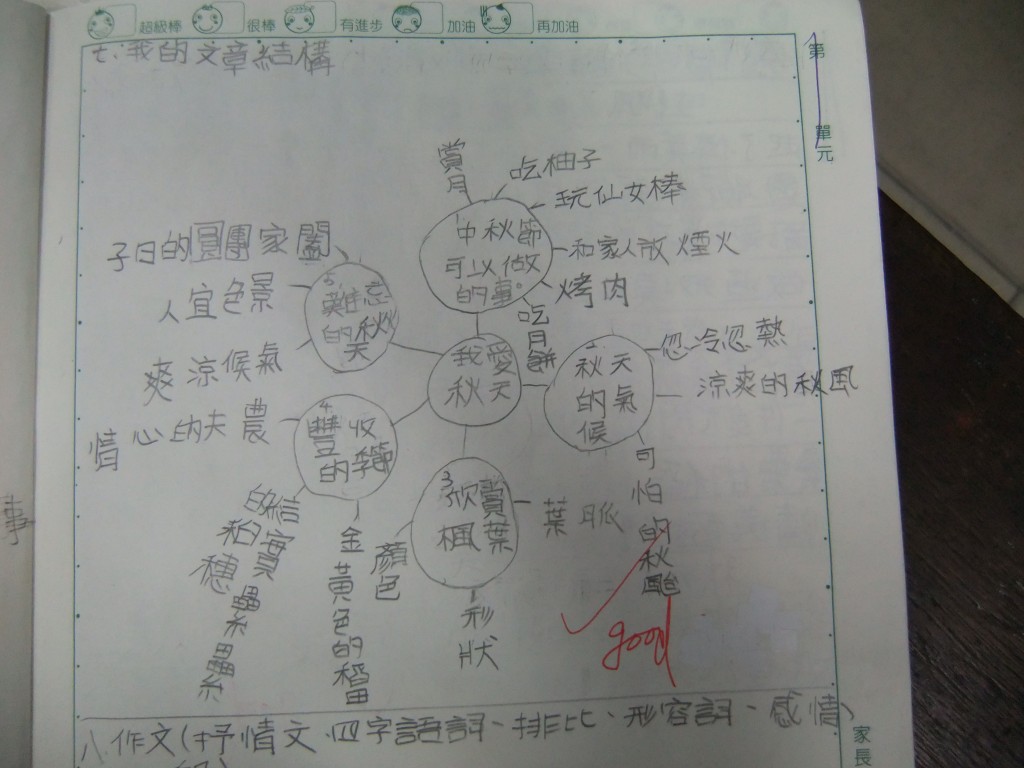 超級棒 很棒 有進步 加油 再加油
第1單元
七、我的文章結構
我愛秋天
中秋節可以做的事。
賞月
吃柚子
玩仙女棒
和家人放煙火
烤肉
吃月餅
秋天的氣候
忽冷忽熱
涼爽的秋風
可怕的秋颱
3欣賞楓葉
葉脈
形狀
顏色
4豐收的季節
金黃色的稻田
結實纍纍的稻穗
農夫的心情
5難忘的秋天
氣候涼爽
景色宜人
闔家團圓的日子
good
八、作文(抒情文、四字語詞、排比、形容詞、感情
家長
事